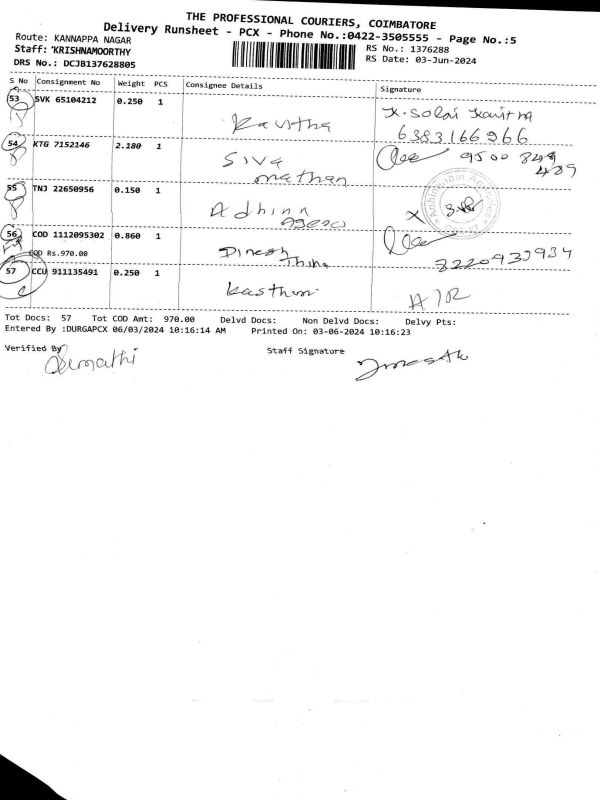 THE PROFESSIONAL COURIERS, COIMBATORE
Delivery Runsheet - PCX - Phone No.:0422-3505555 - Page No.:5
Route: KANNAPPA NAGAR
RS No.: 1376288
Staff: KRISHNAMOORTHY
RS Date: 03-Jun-2024
DRS No.: DCJB137628805
S No Consignment No Weight PCS Consignee Details Signature
53 SVK 65104212 0.250 1
Kavitha
6383166966
54 KTG 7152146 2.180 1
Siva
mathan
9500
55 TNJ 22650956 0.150 1
Adhinn
56 COD 1112095302 0.860 1
COD Rs.970.00
Dinesh
57 CCU 911135491 0.250 1
Tot Docs: 57 Tot COD Amt: 970.00 Delvd Docs: Non Delvd Docs: Delvy Pts:
Entered By :DURGAPCX 06/03/2024 10:16:14 AM Printed On: 03-06-2024 10:16:23
Verified By
Staff Signature